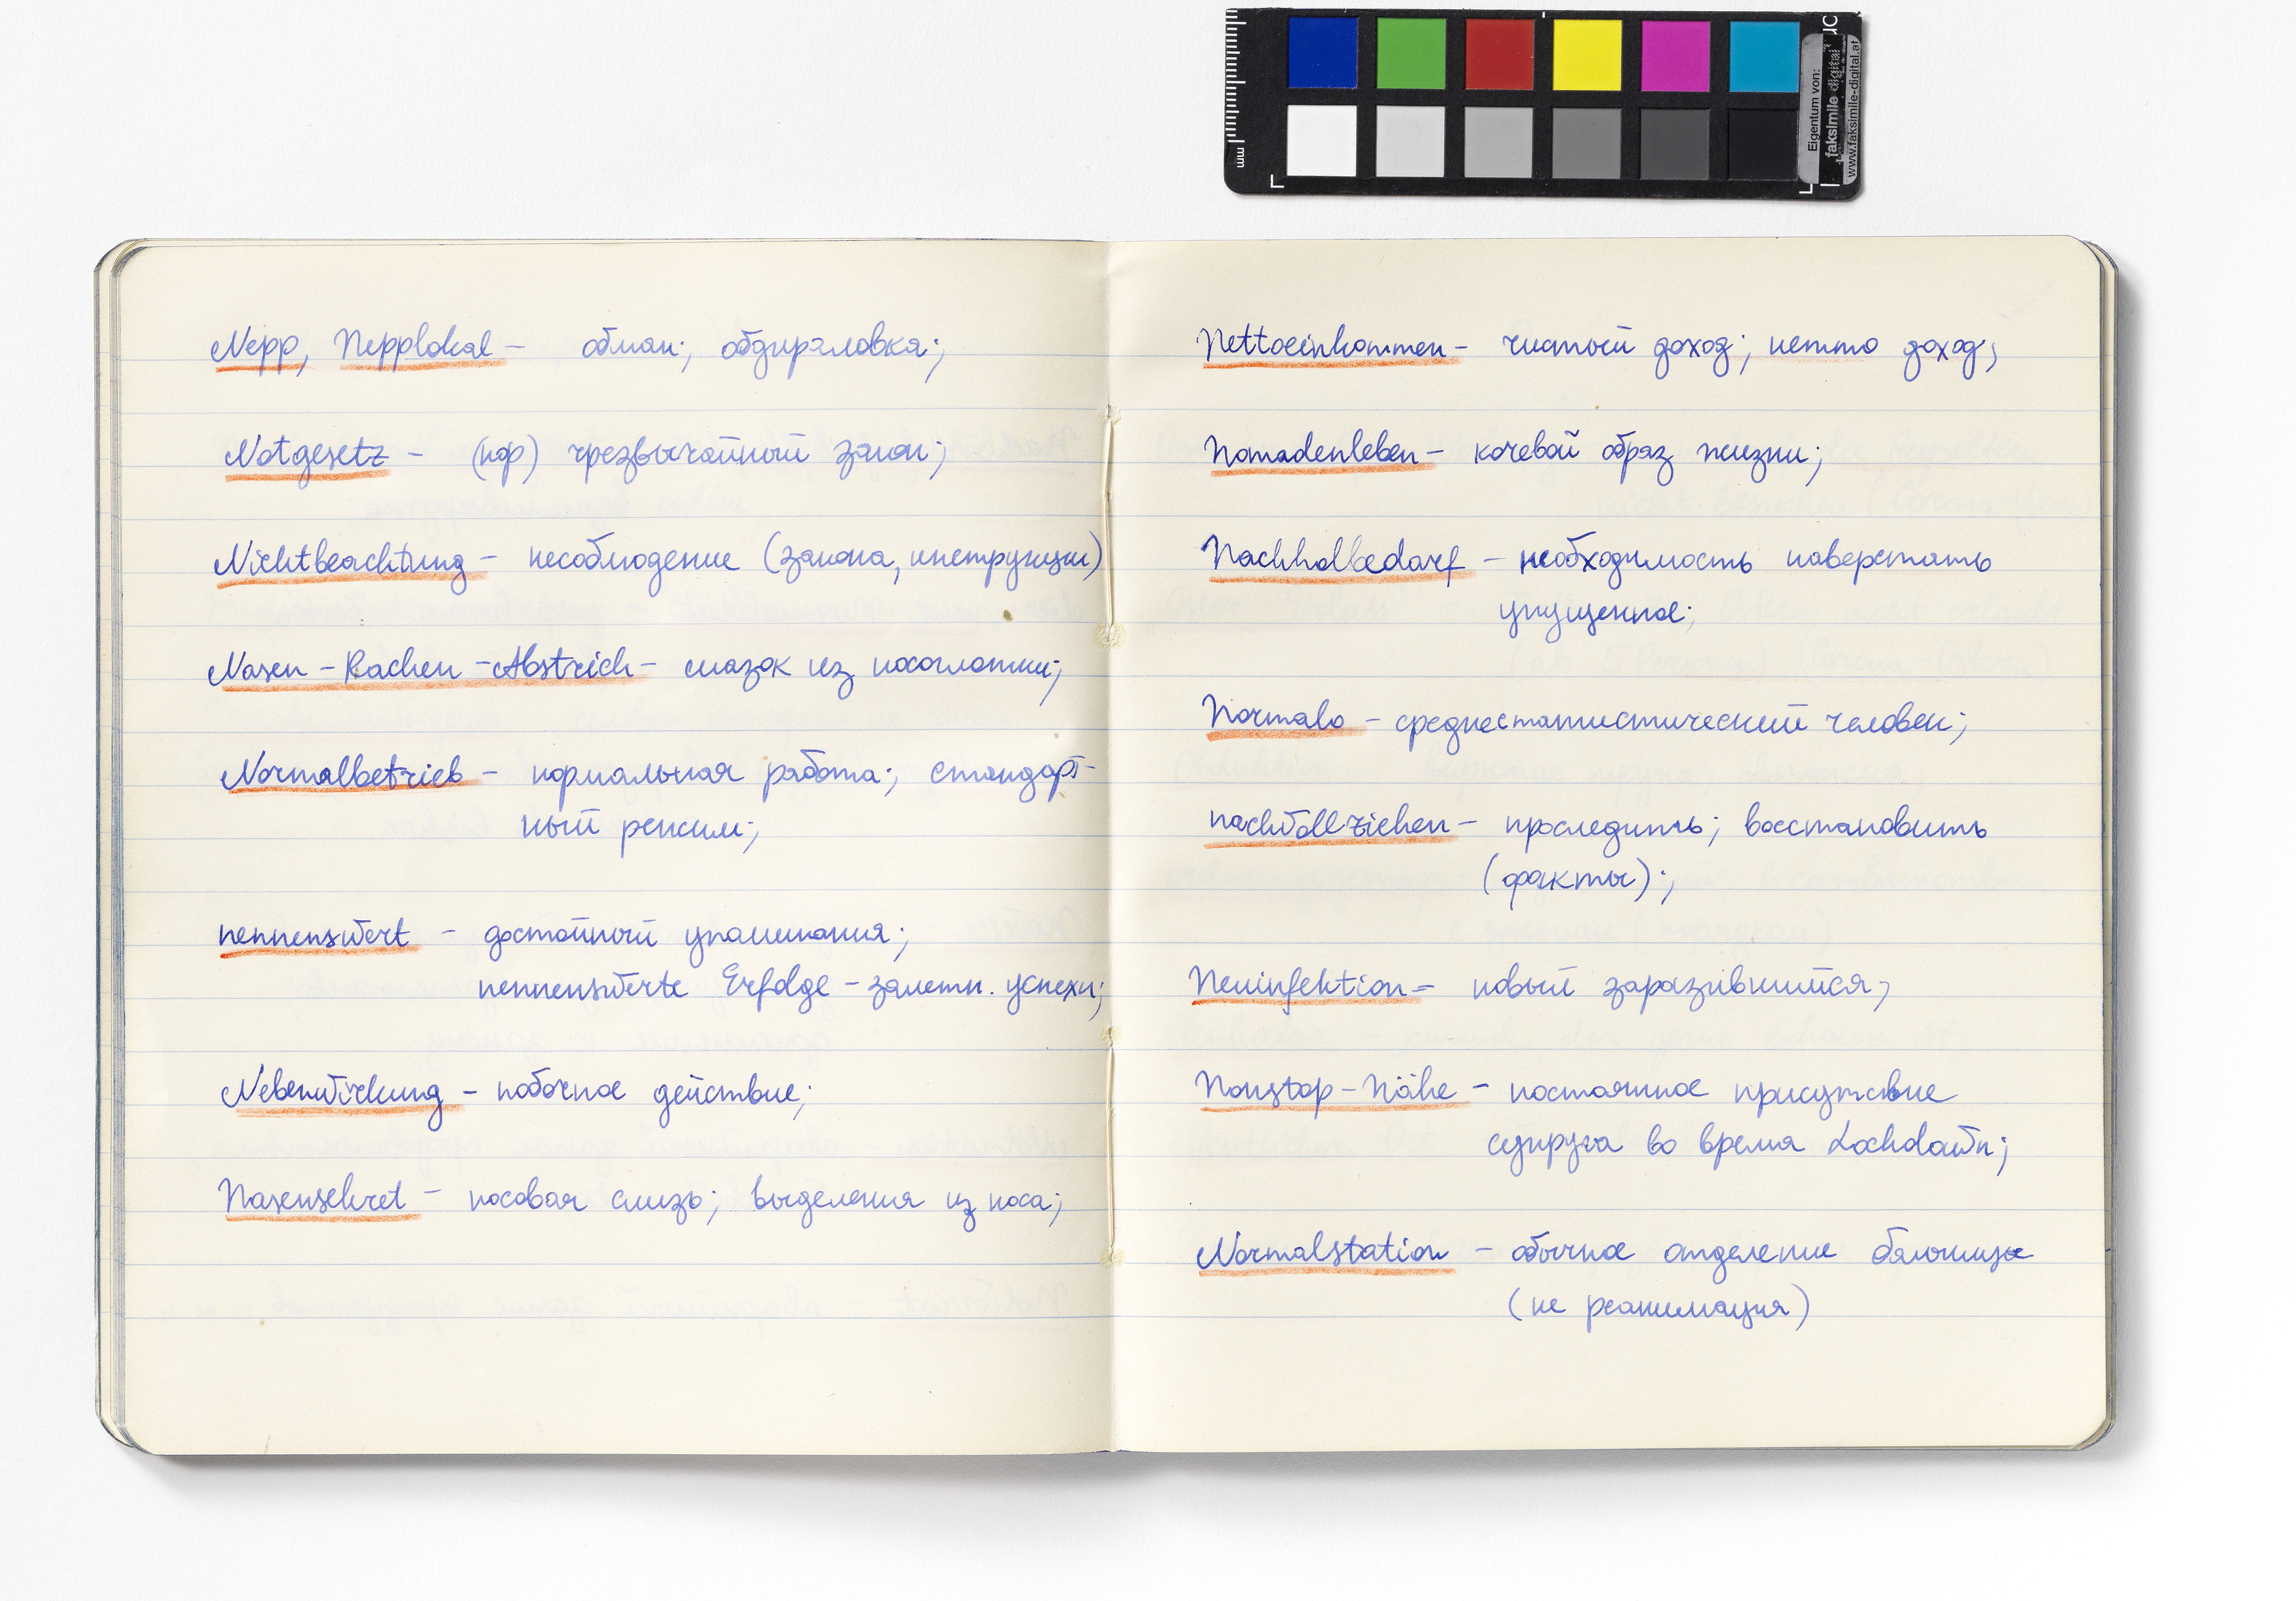 Nepp, Nepplokal – обман; обдираловка;
Notgesetz – (юр) чрезвычайный закон;
Nichtbeachtung – несоблюдение (закона, инструкции)
Nasen-Rachen-Abstrich – мазок из носоглотки;
Normalbetrieb – нормальная работа; стандарт-
ный режим;
nennenswert – достойный упоминания;
nennenswerte Erfolge – заметн. успехи;
Nebenwirkung – побочное действие;
Nasensekret – носовая слизь; выделения из носа;
Nettoeinkommen – чистый доход; нетто доход;
Nomadenleben – кочевой образ жизни;
Nachholbedarf – необходимость наверстать
упущенное;
Normalo – среднестатистический человек;
nachvollziehen – проследить; восстановить
(факты);
Neuinfektion – новый заразившийся;
Nonstop-Nähe – постоянное присутствие
супруга во время Lockdown;
Normalstation – обычное отделение больницы
(не реанимация)
mm
Eigentum von:
faksimile digital
www.faksimile-digital.at